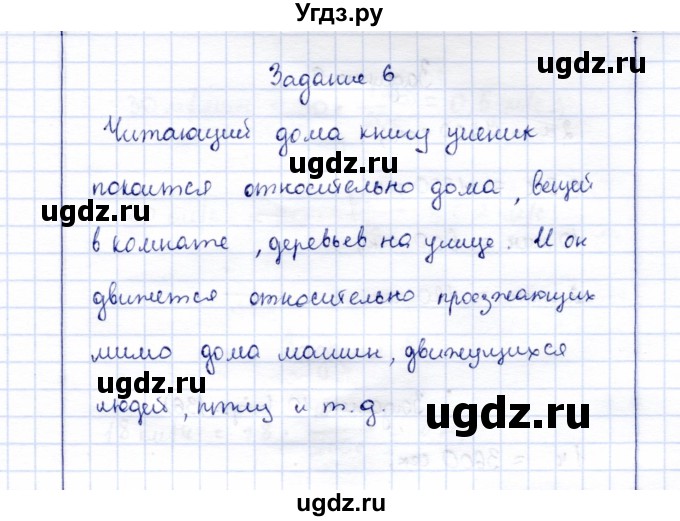 Угдз.ру
Задание 6
Читающий дома книгу ученик
покоится относительно дома, вещей
в комнате, деревьев на улице. И он
движется относительно проезжающих
мимо дома машин, движущихся
людей, птиц и т.д.
ugdz.ru
ugdz.ru
ugdz.ru
ugdz.ru
ugdz.ru
ugdz.ru
ugdz.ru